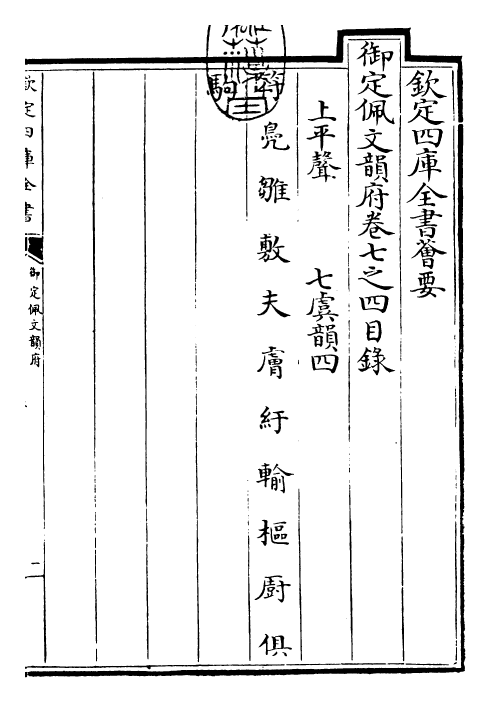 欽定四庫全書薈要
御定佩文韻府卷七之四目錄
上平聲 七虞韻四
符 鳧 雛 敷 夫 膚 紆 輸 樞 厨 俱
駒
欽定四庫全書
御定佩文韻府